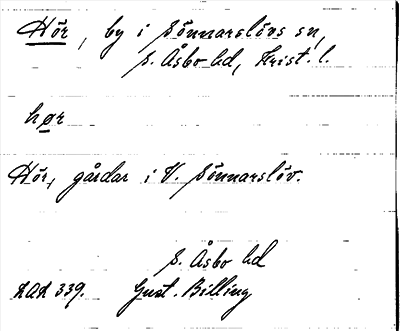 Hör, by i Sönnarslövs sn,
S. Åsbo hd, Krist. l.
hør
Hör, gårdar i V. Sönnarslöv.
S. Åsbo hd
LAL 339. Gust. Billing